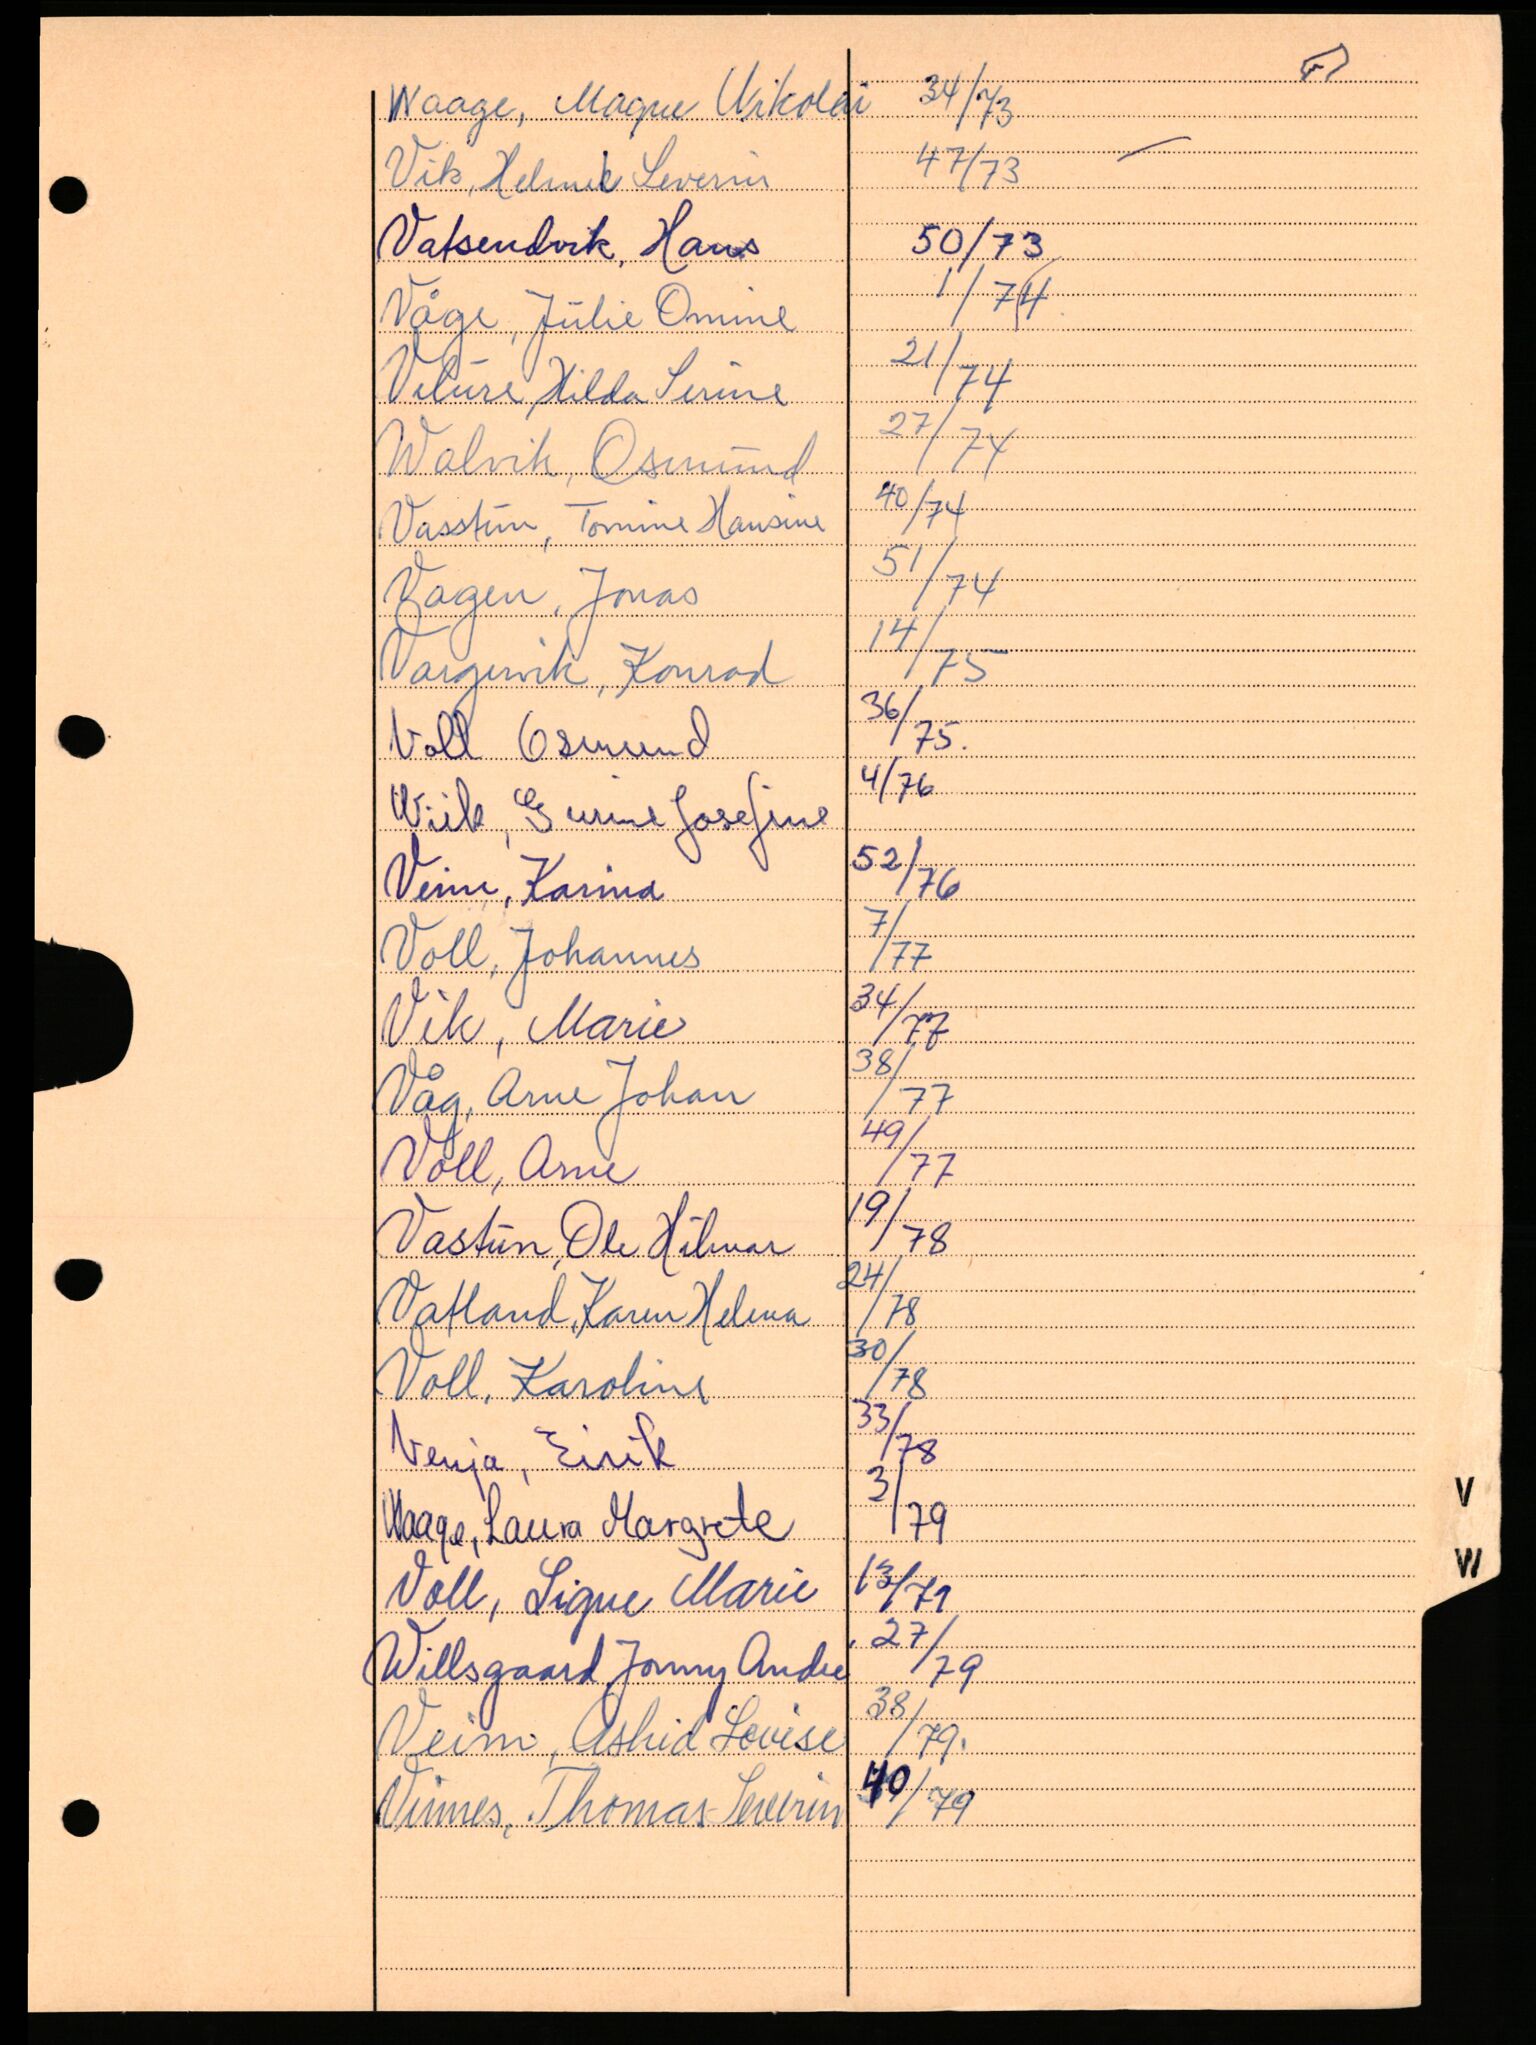 Waage, Magne Nikolai 34/73
Vik, Helmik Severin 47/73
Vatsendvik, Hans 50/73
Våge, Julie Omine 1/74
Veture, Hilda Serine 21/74
Walvik, Osmund 27/74
Vasstun, Tomine Hansine 40/74
Vagen, Jonas 51/74
Vargervik, Konrad 14/75
Voll Osmund 36/75.
Wiik, Gurine Josefine 4/76
Veim, Karina 52/76
Voll, Johannes 7/77
Vik, Marie 34/77
Våg, Arne Johan 38/77
Voll, Arne 49/77
Vastun, Ole Hilmar 19/78
Vatland, Karen Helena 24/78
Voll, Karoline 30/78
Venja, Eirik 33/78
Waage, Laura Margrete 3/79
Voll, Signe Marie 13/79
Willsgaard, Jonny Andre 27/79
Veim, Astrid Lovise 38/79.
Vinnes, Thomas Severin 40/79
V
W